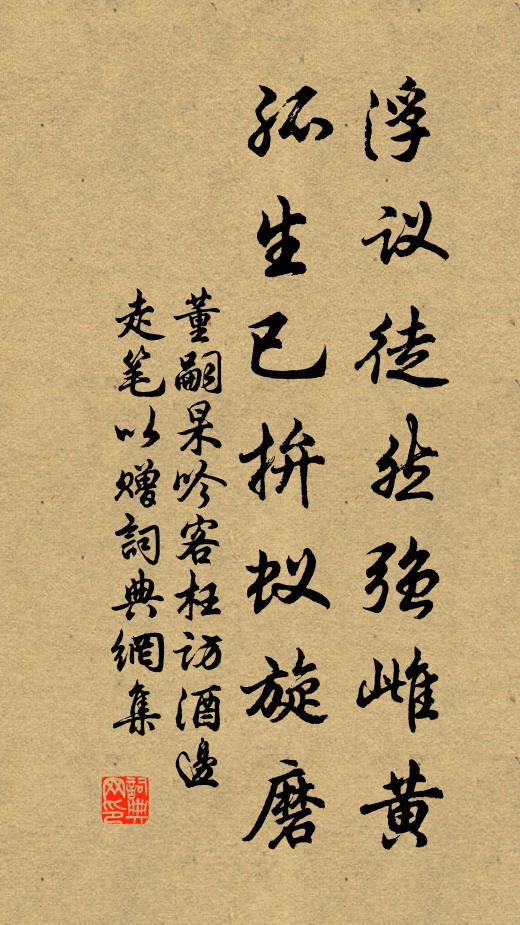 浮议徒然强雌黄
孤生已拚蚁旋磨
董嗣杲吟客枉访酒边
走笔以赠詞典網集
詞典网印